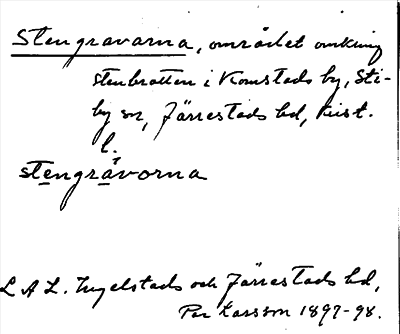 Stengravarna, området omkring
stenbrotten i Komstads by, Sti-
by sn, Järrestads hd, Krist.
l.
stengrávorna
L A L. Ingelstads och Järrestads hd,
Per Larsson 1897-98.